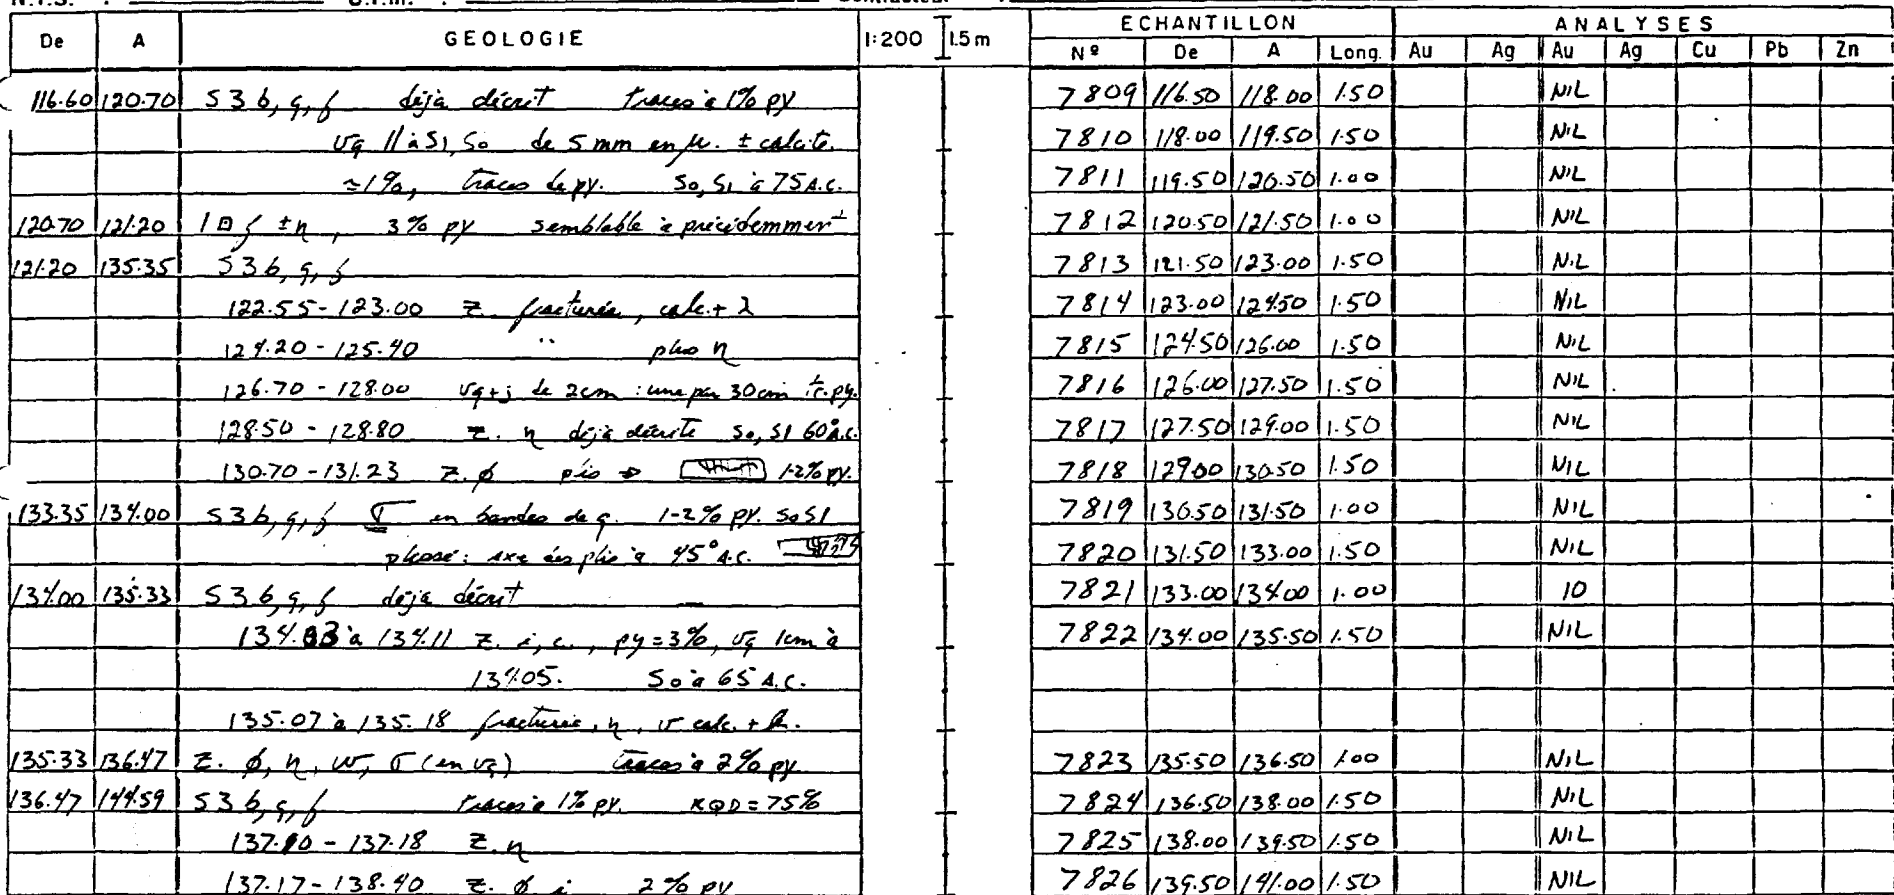 De A GEOLOGIE 1:200 1.5m ECHANTILLON ANALYSES
Nº De A Long. Au Ag Au Ag Cu Pb Zn
116.60 120.70 S3b,q,f déjà décrit traces à 1% py 7809 116.50 118.00 1.50 NIL
vq // à S1, So de 5 mm en µ. ± calcite. 7810 118.00 119.50 1.50 NIL
≃1%, traces de py. So, S1 à 75 A.C. 7811 119.50 120.50 1.00 NIL
120.70 121.20 f ± η, 3% py semblable à précédemment 7812 120.50 121.50 1.00 NIL
121.20 135.35 S3b,q,f 7813 121.50 123.00 1.50 NIL
122.55-123.00 z. fracturée, calc. + λ 7814 123.00 124.50 1.50 NIL
124.20-125.40 " plus η 7815 124.50 126.00 1.50 NIL
126.70-128.00 vq+j de 2cm : une par 30cm tr. py. 7816 126.00 127.50 1.50 NIL
128.50-128.80 z. η déjà décrite So, S1 60° A.C. 7817 127.50 129.00 1.50 NIL
130.70-131.23 z. ø plis ⇒ 1-2% py. 7818 129.00 130.50 1.50 NIL
133.35 134.00 S3b,q,f σ en bandes de q. 1-2% py. So S1 7819 130.50 131.50 1.00 NIL
plissé : axe des plis à 45° A.C. 7820 131.50 133.00 1.50 NIL
134.00 135.33 S3b,q,f déja décrit 7821 133.00 134.00 1.00 10
134.03 à 134.11 z. i, c., py=3%, vq 1cm à 7822 134.00 135.50 1.50 NIL
134.05. So à 65 A.C.
135.07 à 135.18 fracturée, η, v calc. +
135.33 136.47 z. ø, η, w, σ (en vq) traces à 2% py 7823 135.50 136.50 1.00 NIL
136.47 144.59 S3b,q,f traces à 1% py. RQD = 75% 7824 136.50 138.00 1.50 NIL
137.10-137.18 z. η 7825 138.00 139.50 1.50 NIL
137.17-138.40 z. ø i 2% py 7826 139.50 141.00 1.50 NIL